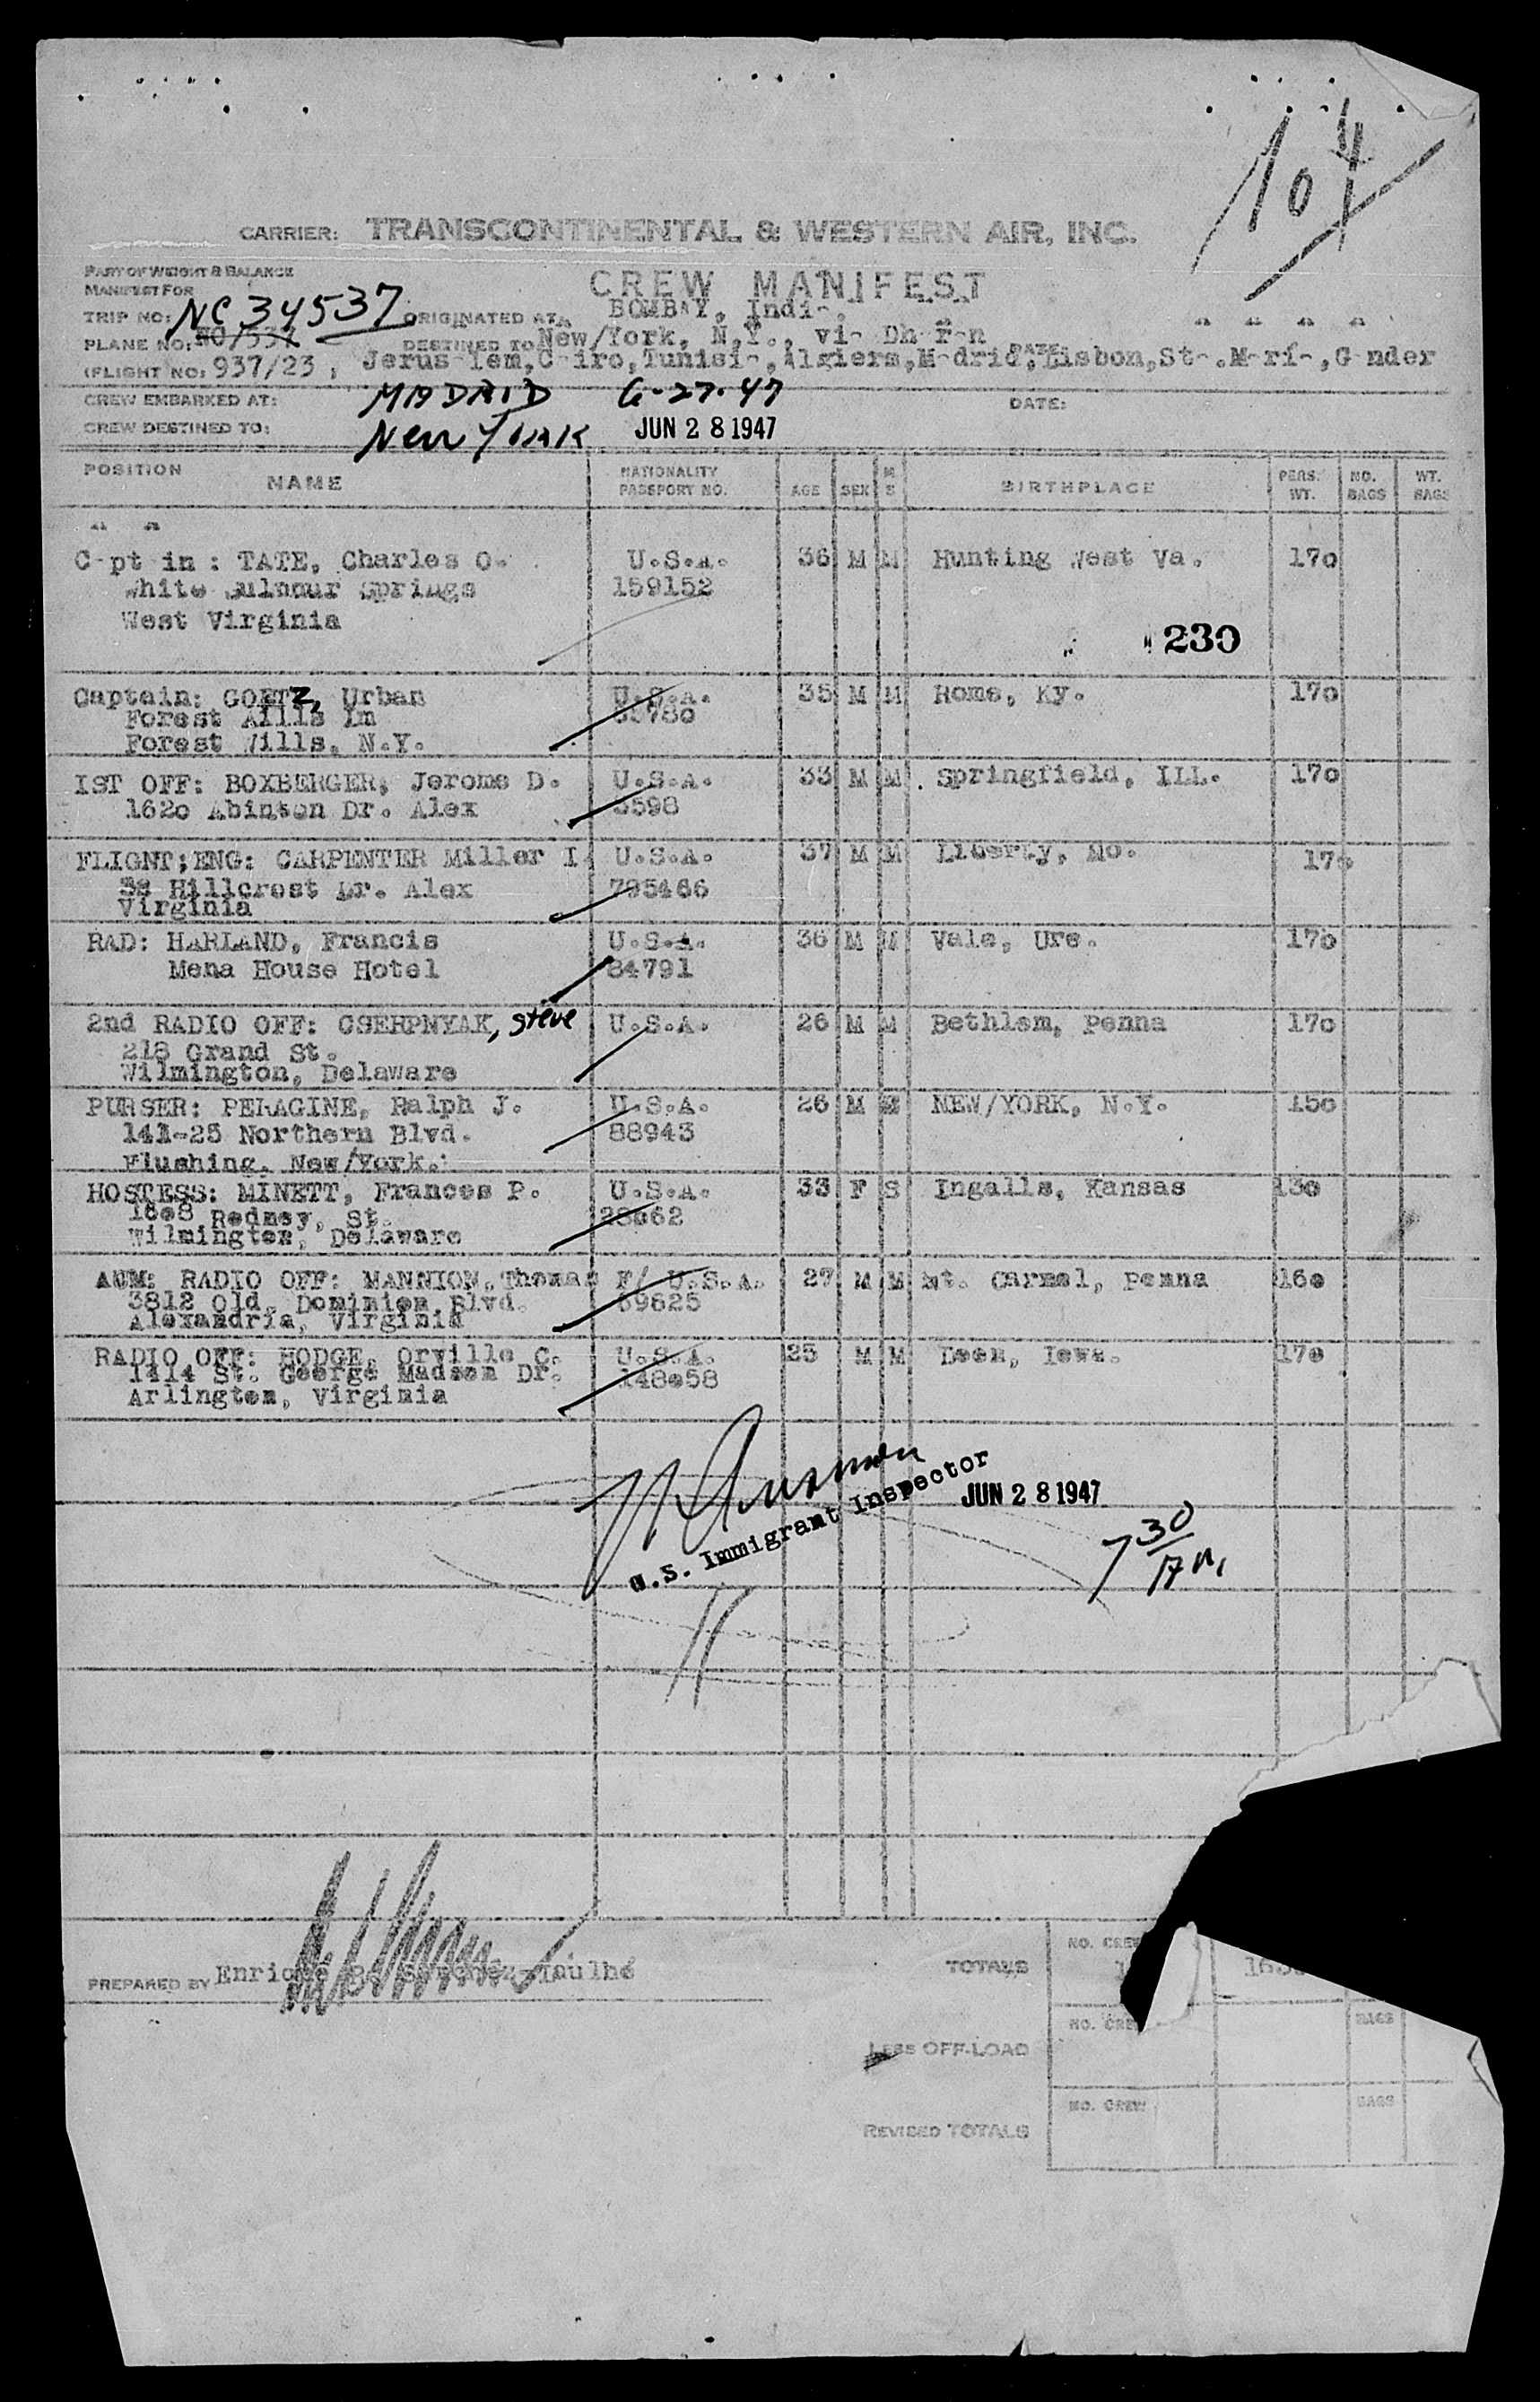 104
CARRIER: TRANSCONTINENTAL & WESTERN AIR, INC.
PART OF WEIGHT & BALANCE
MANIFEST FOR
CREW MANIFEST
TRIP NO: NC 34537 ORIGINATED AT BOMBAY, Indi-.
PLANE NO: NO/537 DESTINED TO New/York, N.Y., vi- Dh-r-n
(FLIGHT NO: 937/23 ; Jerus-lem,C-iro,Tunisi-,Algiers,M-drid,Lisbon,St-.M-rí-,G-nder
DATE:
CREW EMBARKED AT: MADRID 6-27-47 DATE:
CREW DESTINED TO: New York JUN 28 1947
POSITION NAME NATIONALITY PASSPORT NO. AGE SEX M S BIRTHPLACE PERS. WT. NO. BAGS WT. BAGS
C-pt-in : TATE, Charles O. U.S.A. 36 M M Hunting West Va. 17o
White Sulphur Springs 159152
West Virginia
230
Captain: GOETZ, Urban U.S.A. 35 M M Rome, Ky. 17o
Forest Hills Im
Forest Hills, N.Y.
IST OFF: BOXBERGER, Jerome D. U.S.A. 33 M M Springfield, ILL. 17o
162o Abinton Dr. Alex 3598
FLIGNT;ENG: CARPENTER Miller I. U.S.A. 37 M M Liberty, Mo. 17o
Hillcrest Dr. Alex 795466
Virginia
RAD: HARLAND, Francis U.S.A. 36 M M Vale, Ore. 17o
Mena House Hotel 84791
2nd RADIO OFF: CSEHPNYAK, Steve U.S.A. 26 M M Bethlem, Penna 17o
218 Grand St.
Wilmington, Delaware
PURSER: PERAGINE, Ralph J. U.S.A. 26 M M NEW/YORK, N.Y. 15o
141-25 Northern Blvd. 88943
Flushing, New/York.
HOSTESS: MINETT, Frances P. U.S.A. 33 F S Ingalls, Kansas 13o
16o8 Rodney, St. 28o62
Wilmington, Delaware
AUM: RADIO OFF: MANNION, Thomas F/ U.S.A. 27 M M Mt. Carmel, Penna 16o
3812 Old. Dominion Blvd. 69625
Alexandria, Virginia
RADIO OFF: HODGE, Orville C. U.S.A. 25 M M Leon, Iowa. 17o
1414 St. George Madson Dr. 148o58
Arlington, Virginia
U.S. Immigrant Inspector
JUN 28 1947
7 30 AM
PREPARED BY Enrique
TOTALS NO. CREW
LESS OFF-LOAD NO. CREW BAGS
REVISED TOTALS NO. CREW BAGS